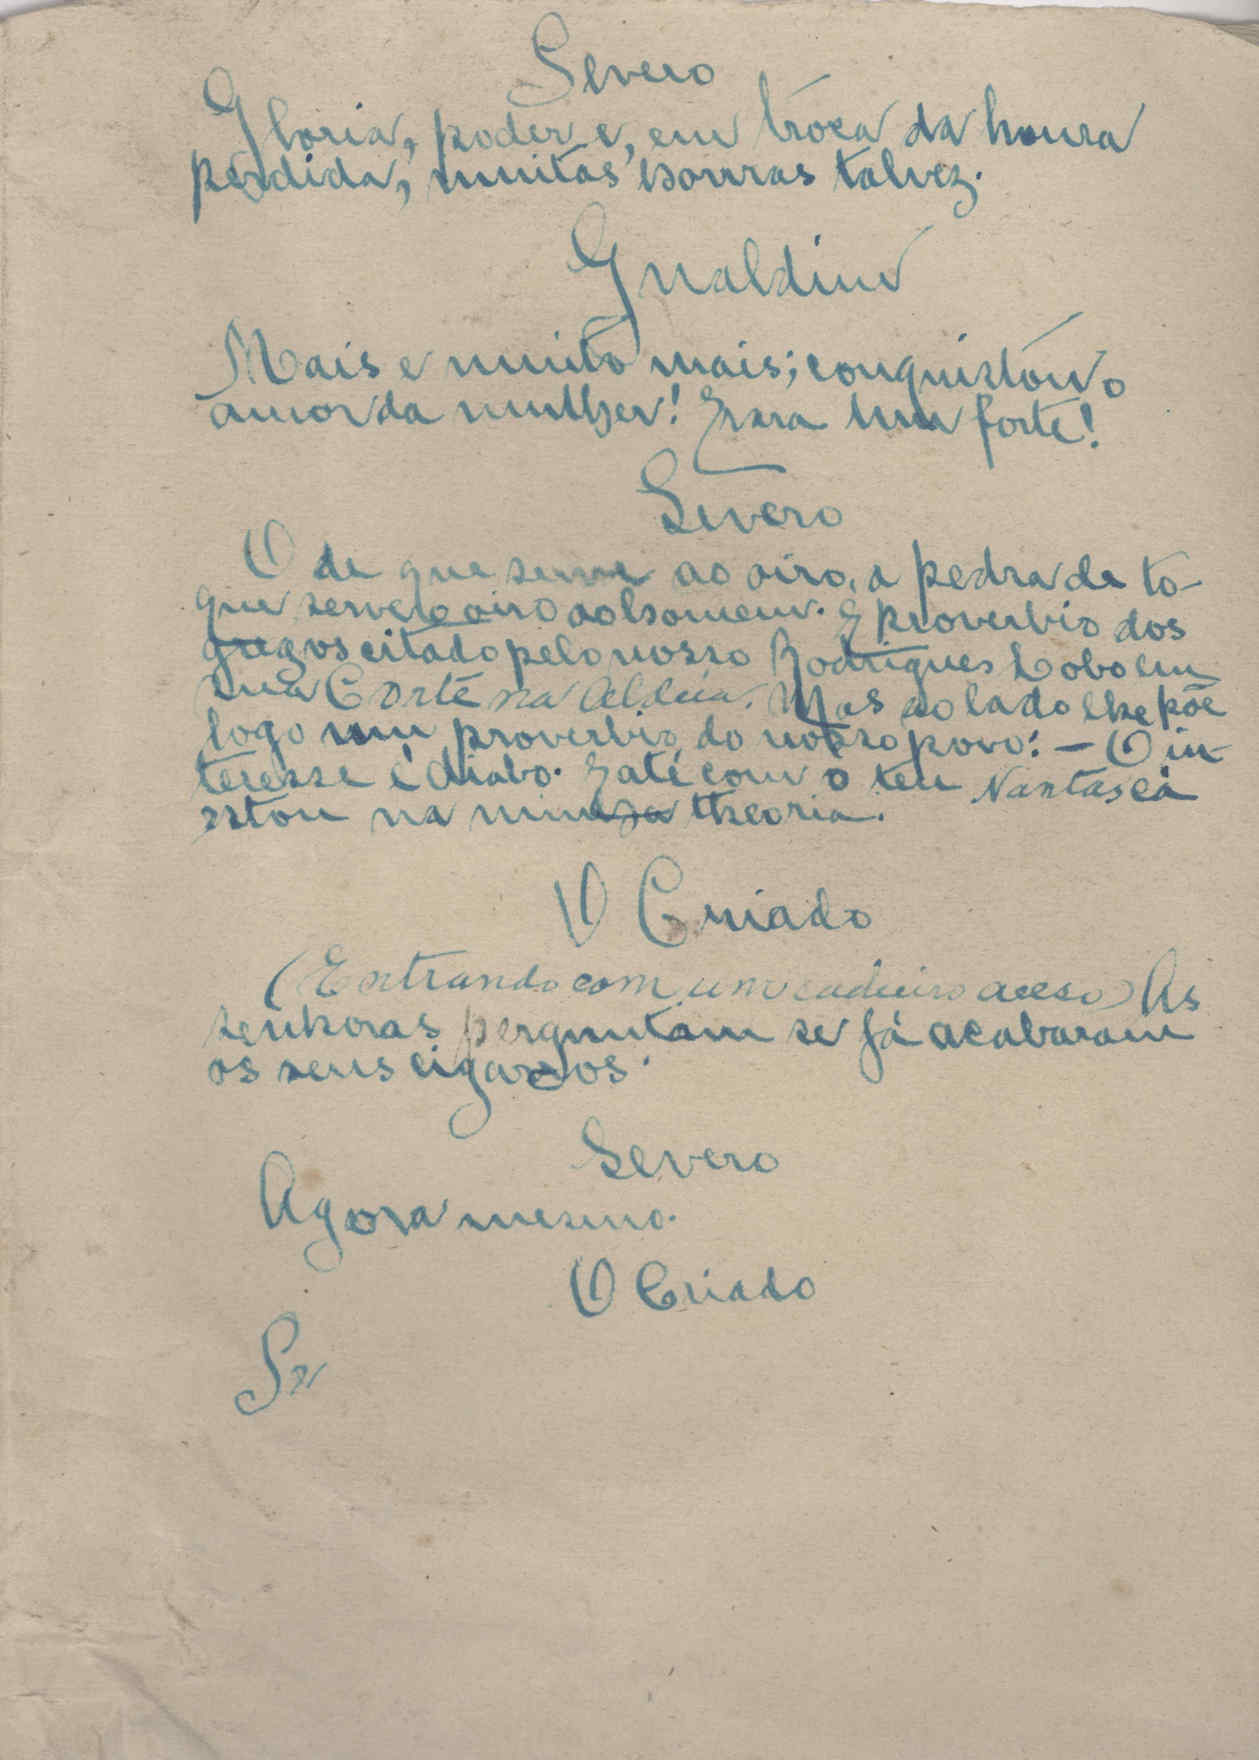 Severo
Gloria, poder e, em troca da honra
perdida, muitas honras talvez.
Gualdino
Mais e muito mais; conquistou o
amor da mulher! Era um forte!
Severo
O de que serve ao oiro a pedra de to-
que serve o oiro ao homem. É proverbio dos
gregos citado pelo nosso Rodrigues Lobo em
sua Corte na Aldeia. Mas ao lado lhe põe
logo um proverbio do nosso povo: — O in-
teresse é diabo. E até com o teu Nantas cá
estou na minha theoria.
O Criado
(Entrando com um candieiro aceso) As
senhoras perguntam se já acabaram
os seus cigarros.
Severo
Agora mesmo.
O Criado